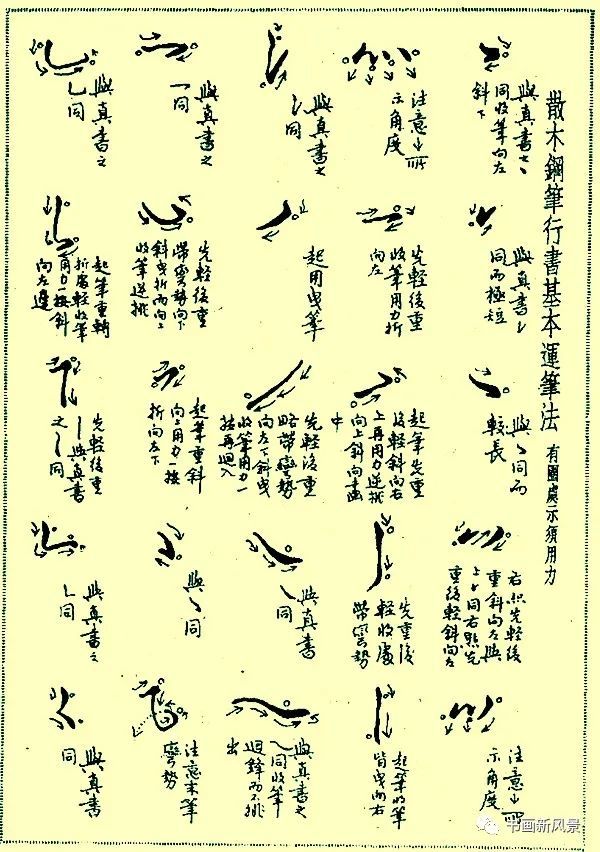 散木鋼筆行書基本運筆法 有圈處示須用力
與真書之丶
同收筆向左
斜下
與真書
同而極短
與丶同而
較長
右點先輕後
重斜向左與
上 同右點先
重後輕斜向左
注意 所
示角度
注意 所
示角度
先輕後重
收筆用力折
向左
起筆先重
後輕斜向右
上再用力逆挑
向上斜向畫
中
先重後
輕收處
帶彎勢
起筆收筆
皆曳向右
與真書之
同
起用曳筆
先輕後重
略帶彎勢
向左下斜曳
收筆用力一
捺再迴入
與真書
同
與真書之
同收筆
迴鋒而不挑
出
與真書之
一同
先輕後重
帶彎勢向下
斜曳折而向上
收筆逆挑
起筆重斜
向上用力一按
折向左下
與 同
注意末筆
彎勢
與真書之
乚同
起筆重轉
折處輕收筆
用力一按斜
向左邊
先輕後重
與真書
之 同
與真書之
乚同
與真書
同
书画新风景